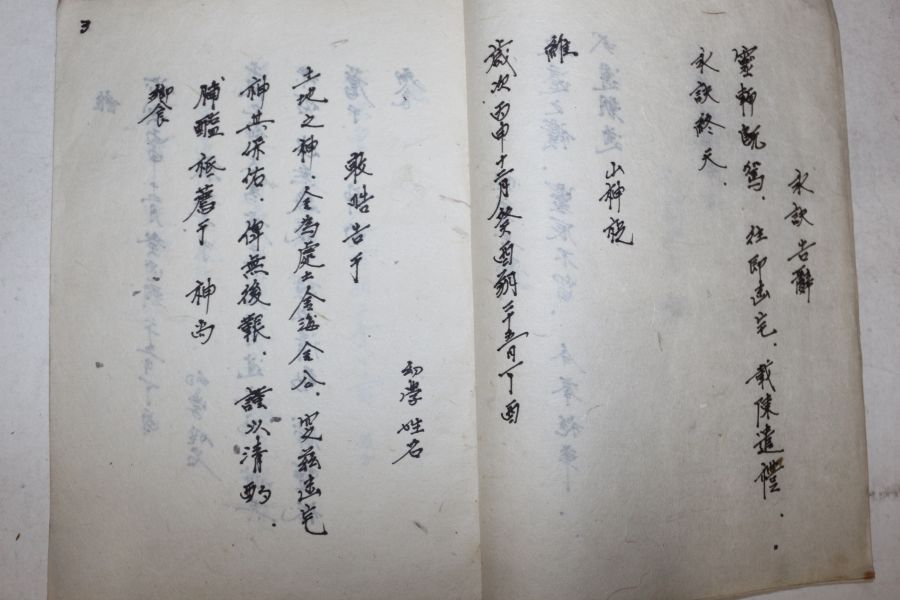 永訣告辭
靈輀旣駕.往卽幽宅.載陳遣禮.
永訣終天.
山神祝
維
歲次丙申十二月癸酉朔二十五日丁酉
幼學姓名
敢昭告于
土地之神.今爲處士金海金公.窆玆幽宅
神其保佑.俾無後艱.謹以淸酌.
脯醢祗薦于 神尙
饗
3